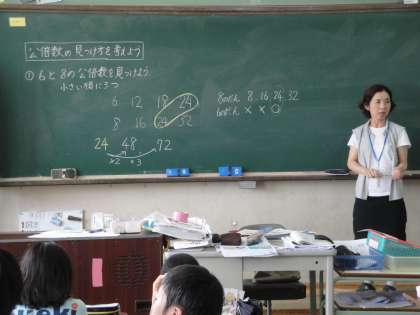 公倍数の見つけ方を考えよう
① 6と8の公倍数を見つけよう
小さい順に3つ
6 12 18 24
8 16 24 32
24 48 72
×2 ×3
8のだん 8 16 24 32
6のだん × × ○